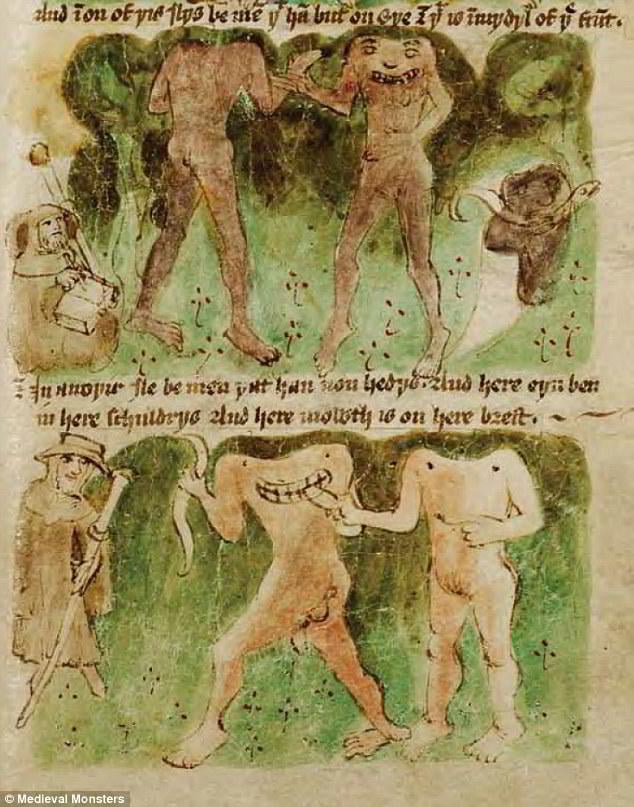 And ī on of þis Ilys be mē þᵗ hā but on Eye & þᵗ is ī mydyl of þᵉ frūt.
In anoþir Ile be men þat han non hedys. And here eyn ben
in here schuldrys And here mowth is on here brest.
© Medieval Monsters